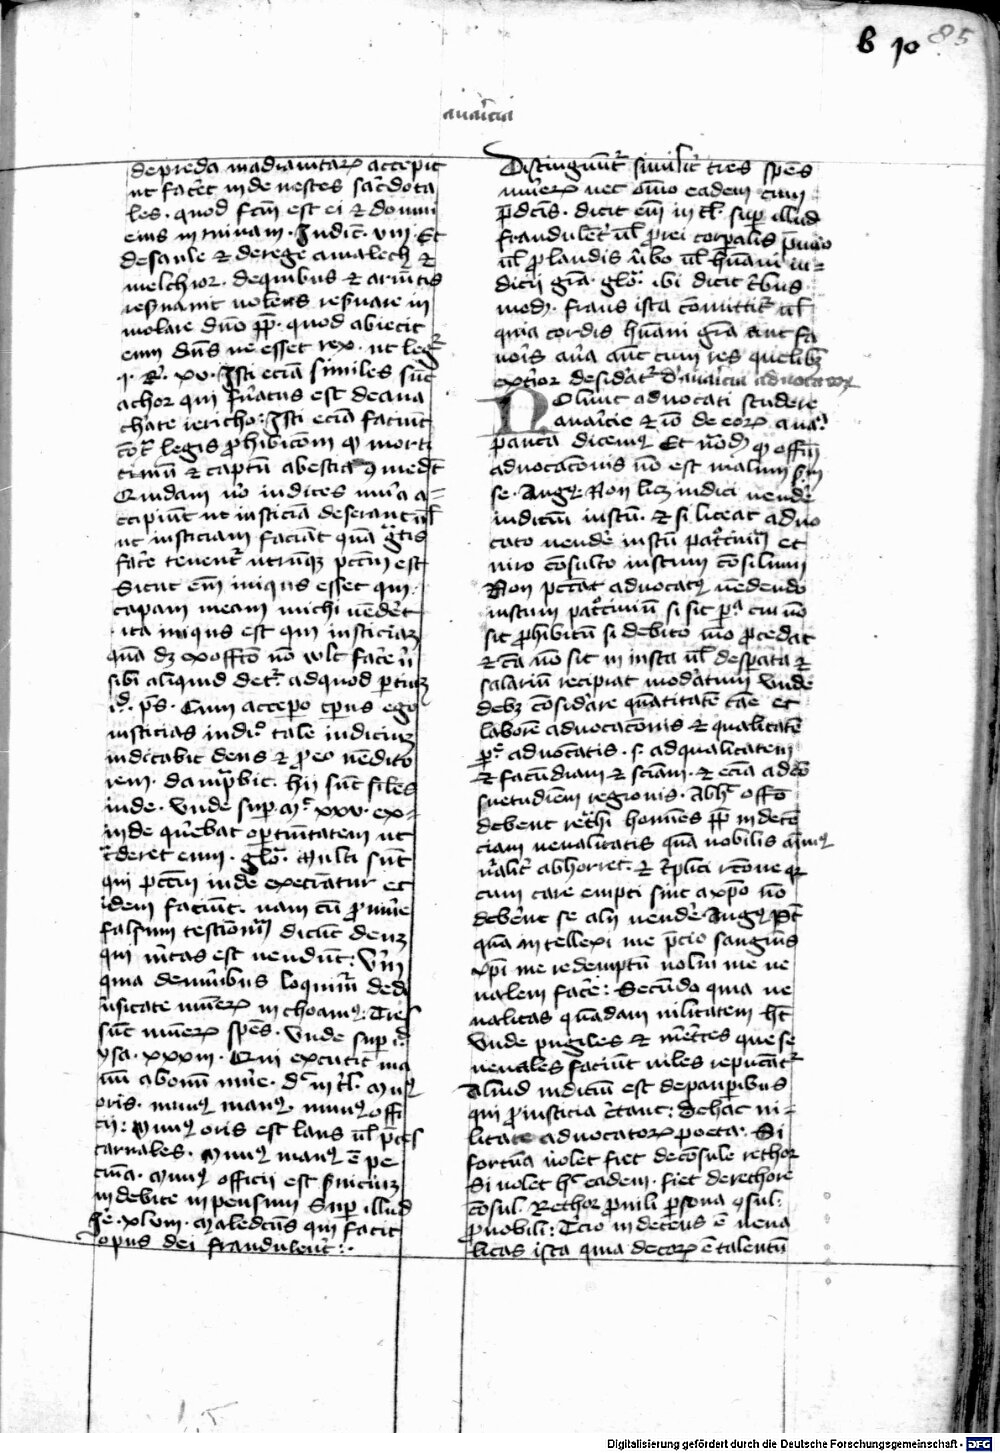 b 10 85
auaricia
de preda madianitarum accepit
ut faceret inde uestes sacerdota
les . quod factum est ei et domui
eius in ruinam . Iudic . viii . Et
de saule et de rege amalech et
melchior . de quibus et armentis
reseruauit uolens reseruare in
molare domino propter quod abiecit
eum dominus ne esset rex . ut legitur
1 . R . xv . Isti eciam similes sunt
achor qui furatus est de ana
themate iericho : Isti eciam faciunt
contra legis prohibicionem
et captum a bestia
Quidam uero iudices munera ac
cipiunt ut iusticiam deserant uel
ut iusticiam faciant quam gratis
facere tenentur utrumque peccatum est
Sicut enim iniquus esset qui
capam meam michi uenderet
ita iniquus est qui iusticiam
quam debet ex officio non vult facere nisi
sibi aliquid detur ad quod
ps . Cum accepero tempus ego
iusticias iudico tale iudicium
iudicabit deus et pro eo uendito
rem . dampnabit . hii sunt similes
iude . Unde super Mt xxvi . ex
inde querebat oportunitatem ut
traderet eum . glo . Multi sunt
qui peccatum iude execrantur et
idem faciunt . nam cum pro munere
falsum testimonium dicunt deum
qui ueritas est uendunt :
quia de muneribus loquimur de
uersitate munerum inchoamus : Tres
sunt munerum species . Unde super
ysa . xxxiii . Qui excutit ma
nus ab omni munere . dicit in Munus
oris . munus manus . munus offi
cii : Munus oris est laus uel preces
carnales . Munus manus est pe
cunia . Munus officii est seruicium
indebite inpensum Super illud
Ie . xlviii . Maledictus qui facit
opus dei fraudulenter : .
Distinguuntur similiter tres species
munerum nec omnino eedem cum
predictis . dicit enim in super illud
fraudulenter uel pro rei corporalis premio
uel pro laudis uerbo uel humani iu=
dicii gratia . glo . ibi dicit tribus
modis . fraus ista committitur uel
quia cordis humani gratia aut fa
uoris aura aut cum res quelibet
exterior desideratur De auaricia aduocatorum
Nolunt aduocati studere
auaricie et ideo de eorum auaritia
pauca dicemus Et notandum quod officium
aduocacionis non est malum secundum
se . Augustinus Non licet iudici uendere
iudicium iustum . et si liceat aduo
cato uendere iustum patrocinium et
uiro consulto iustum consilium
Non peccat aduocatus uendendo
iustum patrocinium si sit persona cui non
sit prohibitum si debito modo procedat
et causa non sit iniusta uel desperata et
salarium recipiat moderatum Unde
debet considerare quantitatem cause et
laborem aduocacionis et qualitatem
persone aduocatis . s . ad qualitatem
et facundiam et scienciam . et eciam ad con
suetudinem regionis . Ab hoc officio
debent retrahi homines propter indecen
ciam uenalitatis quam nobilis animus
naturaliter abhorret . et triplici racione quia
cum care empti sint a christo non
deberent se alii uendere Augustinus
quam intellexi me precio sanguinis
christi me redemptum nolui me ue
nalem facere : Secundo quia ue
nalitas quandam uilitatem habet
Unde pugiles et meretrices que se
uenales faciunt uiles reputantur
Aliud iudicium est de pauperibus
qui pro iusticia certant : De hac ui=
litate aduocatorum poeta . Si
fortuna uolet fiet de consule rethor
Si uolet hec eadem . fiet de rethore
consul . Rethor pro uili persona consul
pro nobili : Tercio indecens est uena
litas ista quia decorum est talentum
Digitalisierung gefördert durch die Deutsche Forschungsgemeinschaft - DFG